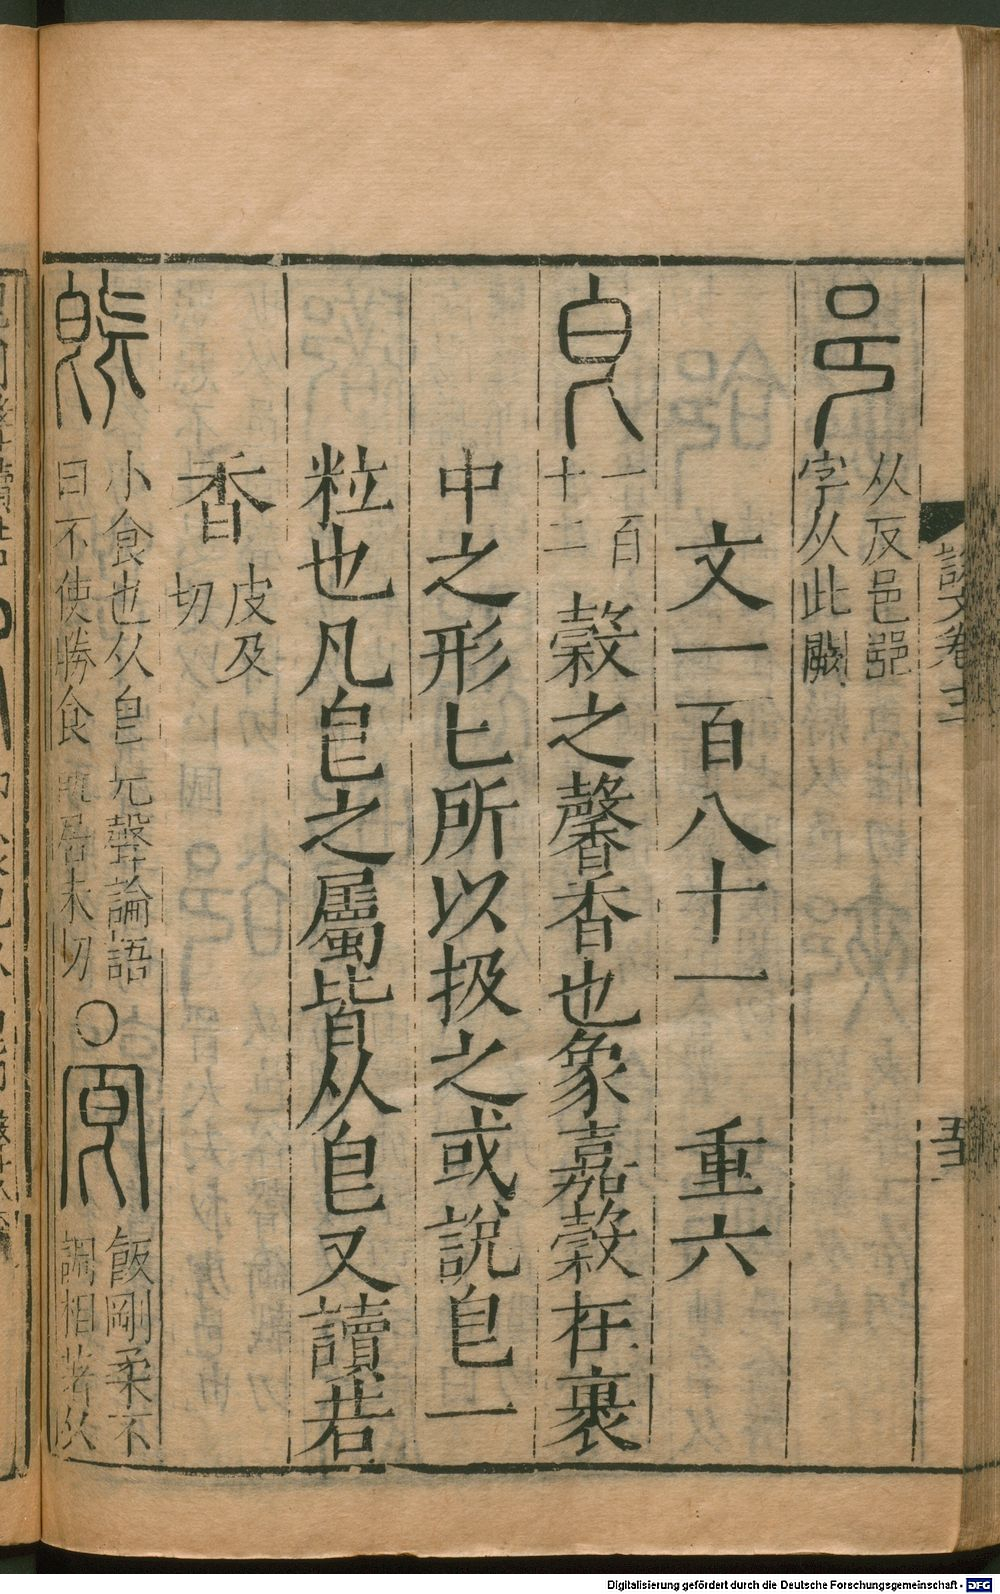 从反邑𨛜
字从此闕
文一百八十一 重六
皀
一百
十二
穀之馨香也象嘉穀在裹
中之形匕所以扱之或說皀一
粒也凡皀之屬皆从皀又讀若
香
皮及
切
小食也从皀旡聲論語
曰不使勝食既居未切
○
飯剛柔不
調相著从
說文卷十二
五
Digitalisierung gefördert durch die Deutsche Forschungsgemeinschaft - DFG